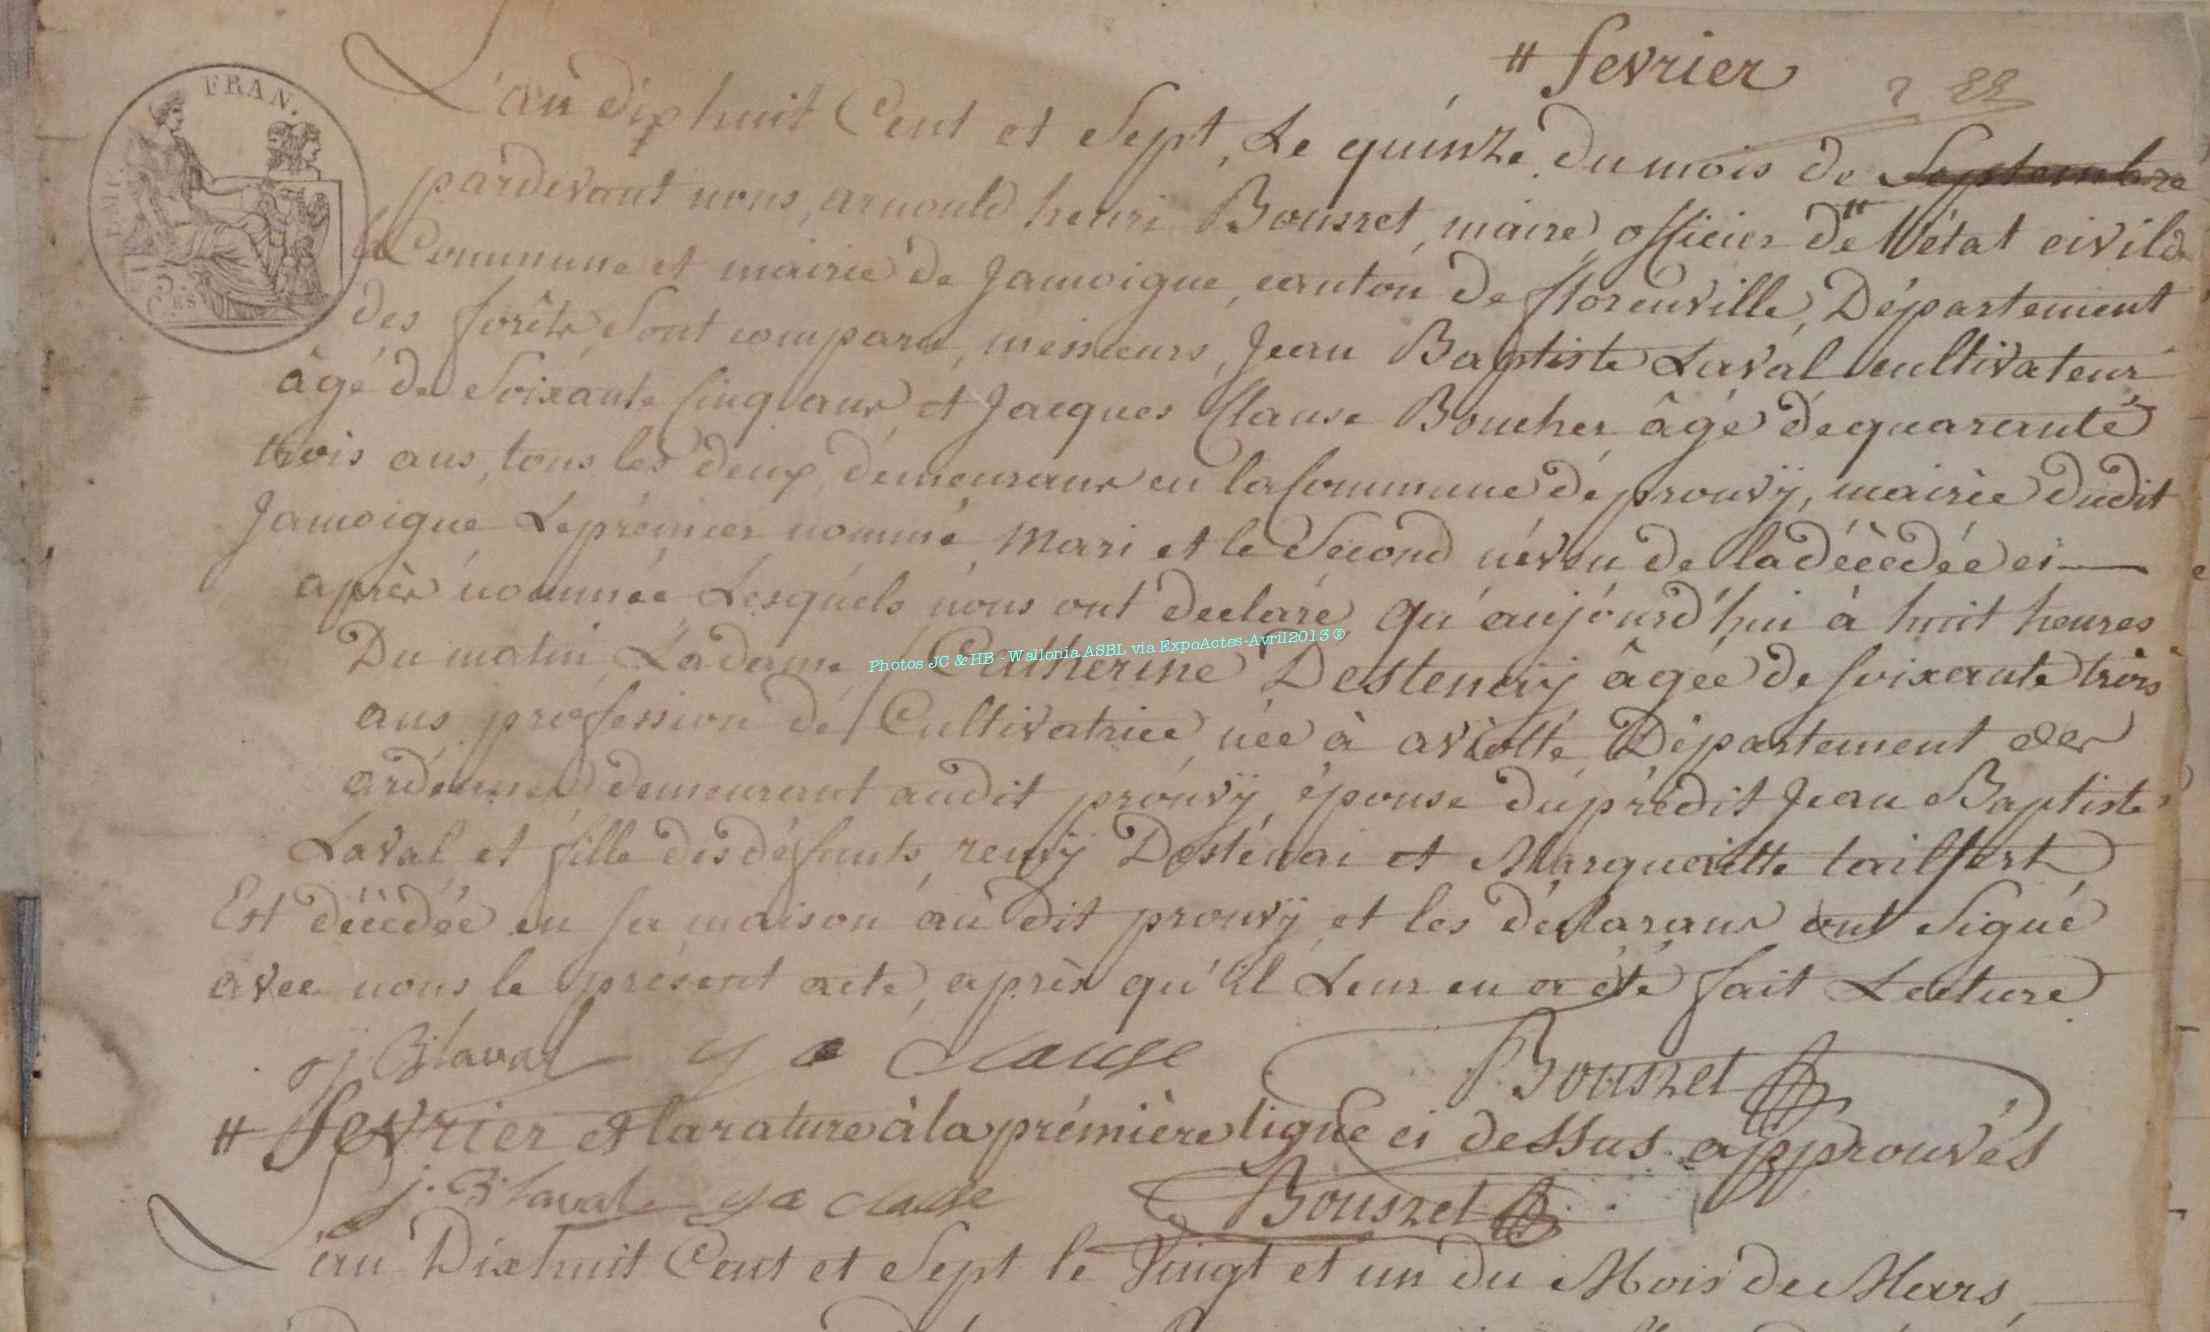 # fevrier
22
L'an dix huit Cent et Sept, Le quinze du mois de Septembre
pardevant nous, arnould henri Bousret, maire, officier de l'état civil de
la Commune et mairie de Jamoigne, canton de florenville, Département
des forêts, Sont comparu, messieurs, Jean Baptiste Laval cultivateur
âgé de Soixante Cinq ans, et Jacques Clause Boucher âgé de quarante
trois ans, tous les deux demeurans en la Commune de prouvÿ, mairie dudit
Jamoigne Le prémier nommé, Mari et le Second néveu de la décédée ci
après nommée, Lesquels nous ont declaré qu'aujourd'hui à huit heures
Du matin, La dame Catherine Destenaÿ âgée de soixante trois
ans profession de Cultivatrice, née à aviotte, Département des
ardennes demeurant audit prouvÿ, épouse du prédit Jean Baptiste
Laval, et fille des défunts, remÿ Desténai et Margueritte tailfert
Est décédée en sa maison au dit prouvÿ, et les déclarans ont Signé
avec nous le présent acte, après qu'il Leur en a été fait Lecture
j B laval Clause Bousret
# fevrier et la rature à la prémière ligne ci dessus approuvés
j. B laval Bousret
L'an Dix huit Cent et Sept le Vingt et un du Mois de Mars,
FRAN.
Photos JC & HB - Wallonia ASBL via ExpoActes-Avril2013 ®